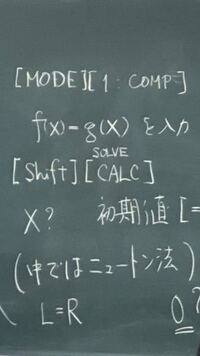 [MODE][1:COMP]
f(x)=g(x) を入力
SOLVE
[Shift][CALC]
X? 初期値 [=
(中ではニュートン法)
L=R 0?